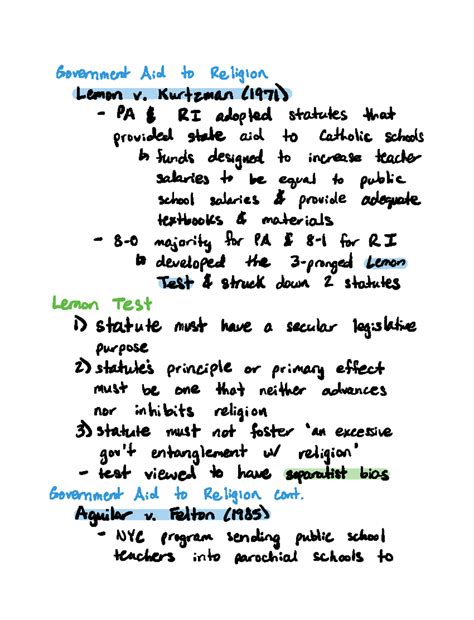 Government Aid to Religion
Lemon v. Kurtzman (1971)
- PA & RI adopted statutes that
provided state aid to Catholic schools
↳ funds designed to increase teacher
salaries to be equal to public
school salaries & provide adequate
textbooks & materials
- 8-0 majority for PA & 8-1 for RI
↳ developed the 3-pronged Lemon
Test & struck down 2 statutes
Lemon Test
1) statute must have a secular legislative
purpose
2) statute's principle or primary effect
must be one that neither advances
nor inhibits religion
3) statute must not foster 'an excessive
gov't entanglement w/ religion'
- test viewed to have separatist bias
Government Aid to Religion cont.
Aguilar v. Felton (1985)
- NYC program sending public school
teachers into parochial schools to